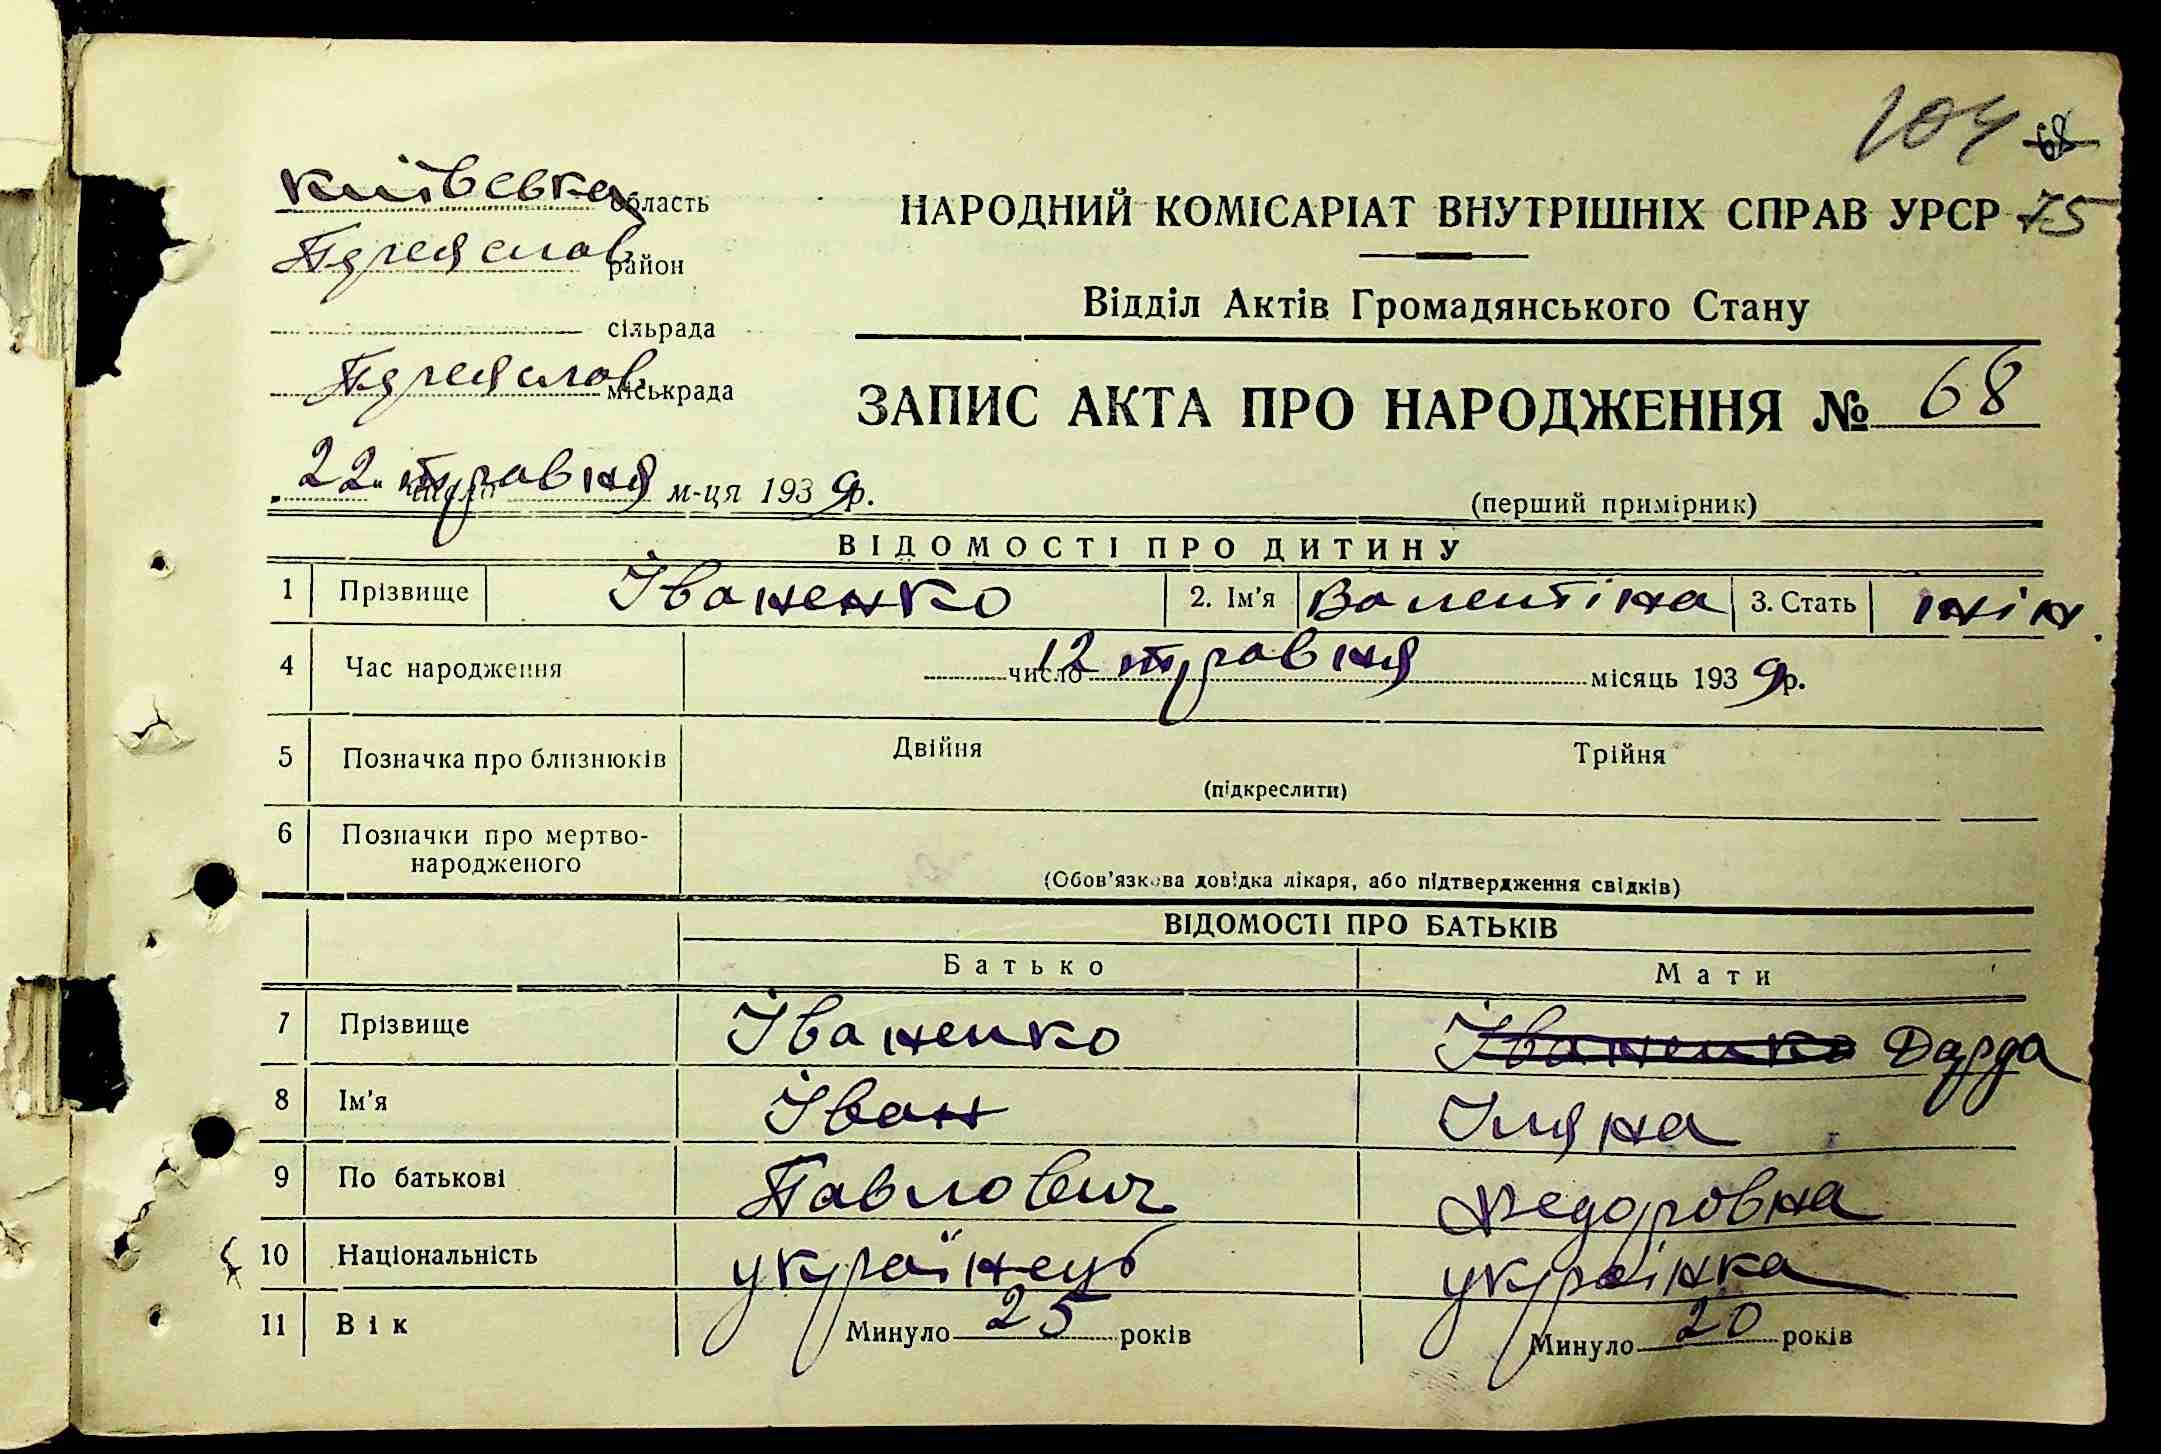 104 68
Київська область
НАРОДНИЙ КОМІСАРІАТ ВНУТРІШНІХ СПРАВ УРСР 75
Переяслав район
Відділ Актів Громадянського Стану
сільрада
Переяслав міськрада
ЗАПИС АКТА ПРО НАРОДЖЕННЯ № 68
„22“ число травня м-ця 1939р.
(перший примірник)
ВІДОМОСТІ ПРО ДИТИНУ
1 Прізвище Іваненко 2. Ім'я Валентіна 3. Стать жін.
4 Час народження число 12 травня місяць 1939р.
5 Позначка про близнюків Двійня Трійня
(підкреслити)
6 Позначки про мертво-
народженого
(Обов'язкова довідка лікаря, або підтвердження свідків)
ВІДОМОСТІ ПРО БАТЬКІВ
Батько Мати
7 Прізвище Іваненко Іваненко
8 Ім'я Іван Уляна
9 По батькові Павлович Федоровна
10 Національність українець українка
11 Вік Минуло 25 років Минуло 20 років